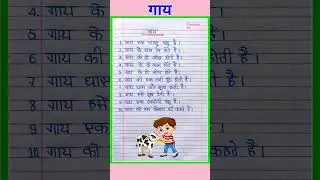 गाय
गाय
1. गाय एक पालतू पशु है।
2. गाय के चार पैर होते हैं।
3. गाय की दो आँख होती हैं।
4. गाय के दो कान होते हैं।
5. गाय के दो सींग होते हैं।
6. गाय की एक लम्बी पूँछ होती है।
7. गाय घास और भूसा खाती है।
8. गाय हमें दूध देती है।
9. गाय एक उपयोगी पशु है।
10. गाय को हम गौमाता भी कहते हैं।
4. गाय के
5. गाय के
6. गाय की
7. गाय घास
8. गाय हमें
9. गाय एक
10. गाय को
होते हैं।
होती है।
है।
कहते हैं।